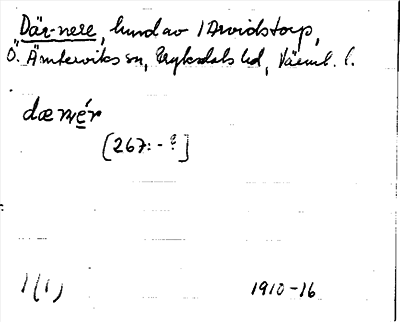 Där-nere, hund av 1 Arvidstorp,
Ö. Ämterviks sn, Fryksdals hd, Värml. l.
dæ nér
[267: - ?]
1(1)
1910-16